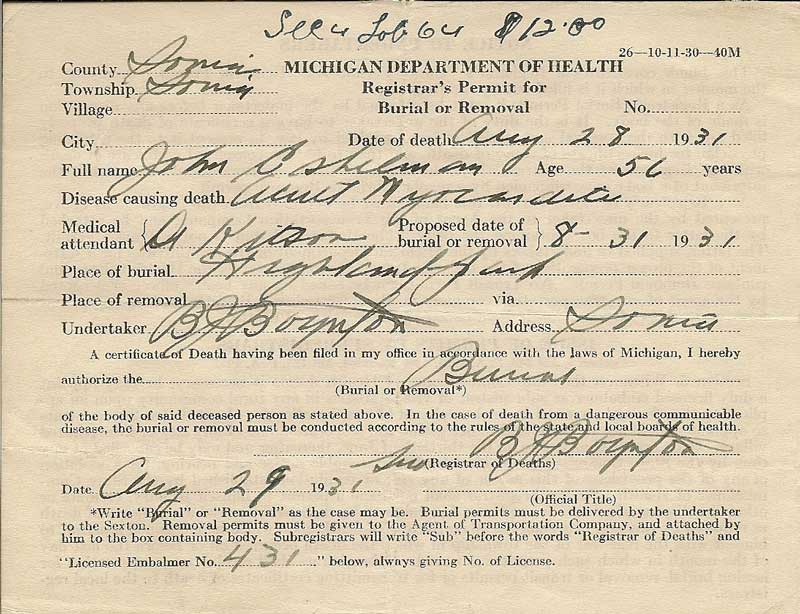 Sec 4 Lot 64 $12.00
26-10-11-30-40M
County Ionia MICHIGAN DEPARTMENT OF HEALTH
Township Ionia Registrar's Permit for
Village Burial or Removal No.
City Date of death Aug 28 1931
Full name John Eshelman Age 56 years
Disease causing death Acute Myocarditis
Medical attendant { A Kitson Proposed date of burial or removal } 8-31 1931
Place of burial Highland Park
Place of removal via
Undertaker B J Boynton Address Ionia
A certificate of Death having been filed in my office in accordance with the laws of Michigan, I hereby
authorize the Burial
(Burial or Removal*)
of the body of said deceased person as stated above. In the case of death from a dangerous communicable
disease, the burial or removal must be conducted according to the rules of the state and local boards of health.
B J Boynton
Sub (Registrar of Deaths)
Date Aug 29 1931
(Official Title)
*Write "Burial" or "Removal" as the case may be. Burial permits must be delivered by the undertaker
to the Sexton. Removal permits must be given to the Agent of Transportation Company, and attached by
him to the box containing body. Subregistrars will write "Sub" before the words "Registrar of Deaths" and
"Licensed Embalmer No. 431 " below, always giving No. of License.